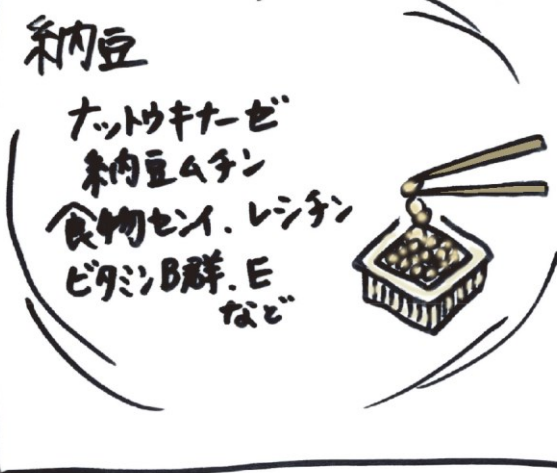 納豆
ナットウキナーゼ
納豆ムチン
食物センイ、レシチン
ビタミンB群、E
など